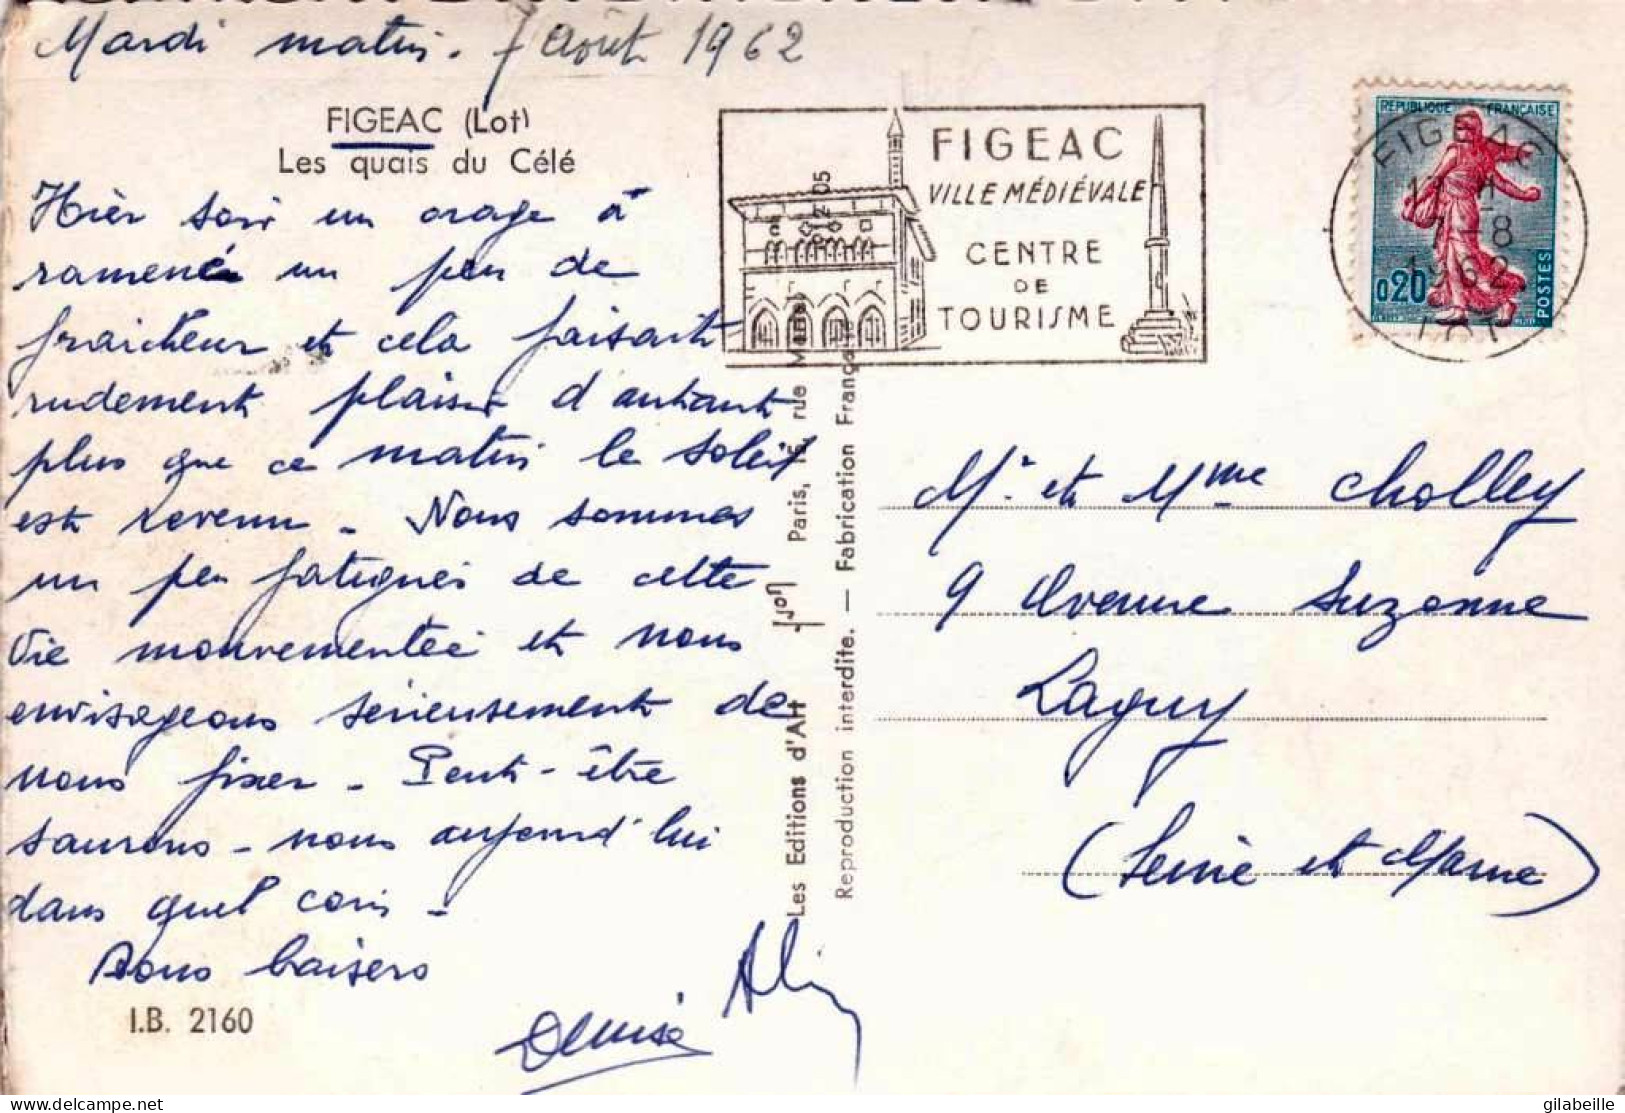 Mardi matin. 7 Août 1962
FIGEAC (Lot)
Les quais du Célé
Hièr soir un orage à
ramené un peu de
fraicheur et cela faisait
rudement plaisir d'autant
plus que ce matin le soleil
est revenu _ Nous sommes
un peu fatigués de cette
vie mouvementée et nous
envisageons sérieusement de
nous fixer _ Peut-être
saurons-nous aujourd'hui
dans quel coin _
Bons baisers
Denise
I.B. 2160
FIGEAC
VILLE MÉDIÉVALE
CENTRE
DE
TOURISME
RÉPUBLIQUE FRANÇAISE
0,20
POSTES
FIGEAC
7-8
1962
LOT
Les Editions d'Art Yvon Paris, 15, rue Martel
Reproduction interdite. — Fabrication Française
Mr et Mme Cholley
9 Avenue Suzanne
Lagny
(Seine et Marne)
gilabeille